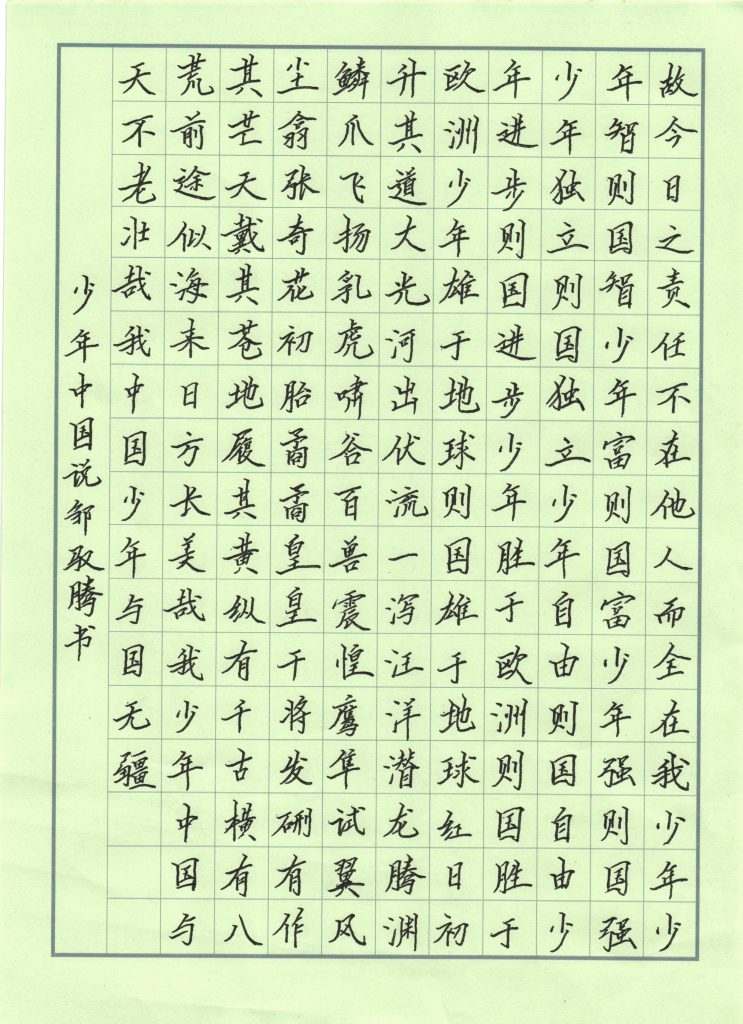 故今日之责任不在他人而全在我少年少
年智则国智少年富则国富少年强则国强
少年独立则国独立少年自由则国自由少
年进步则国进步少年胜于欧洲则国胜于
欧洲少年雄于地球则国雄于地球红日初
升其道大光河出伏流一泻汪洋潜龙腾渊
鳞爪飞扬乳虎啸谷百兽震惶鹰隼试翼风
尘翕张奇花初胎矞矞皇皇干将发硎有作
其芒天戴其苍地履其黄纵有千古横有八
荒前途似海来日方长美哉我少年中国与
天不老壮哉我中国少年与国无疆
少年中国说邹驭腾书